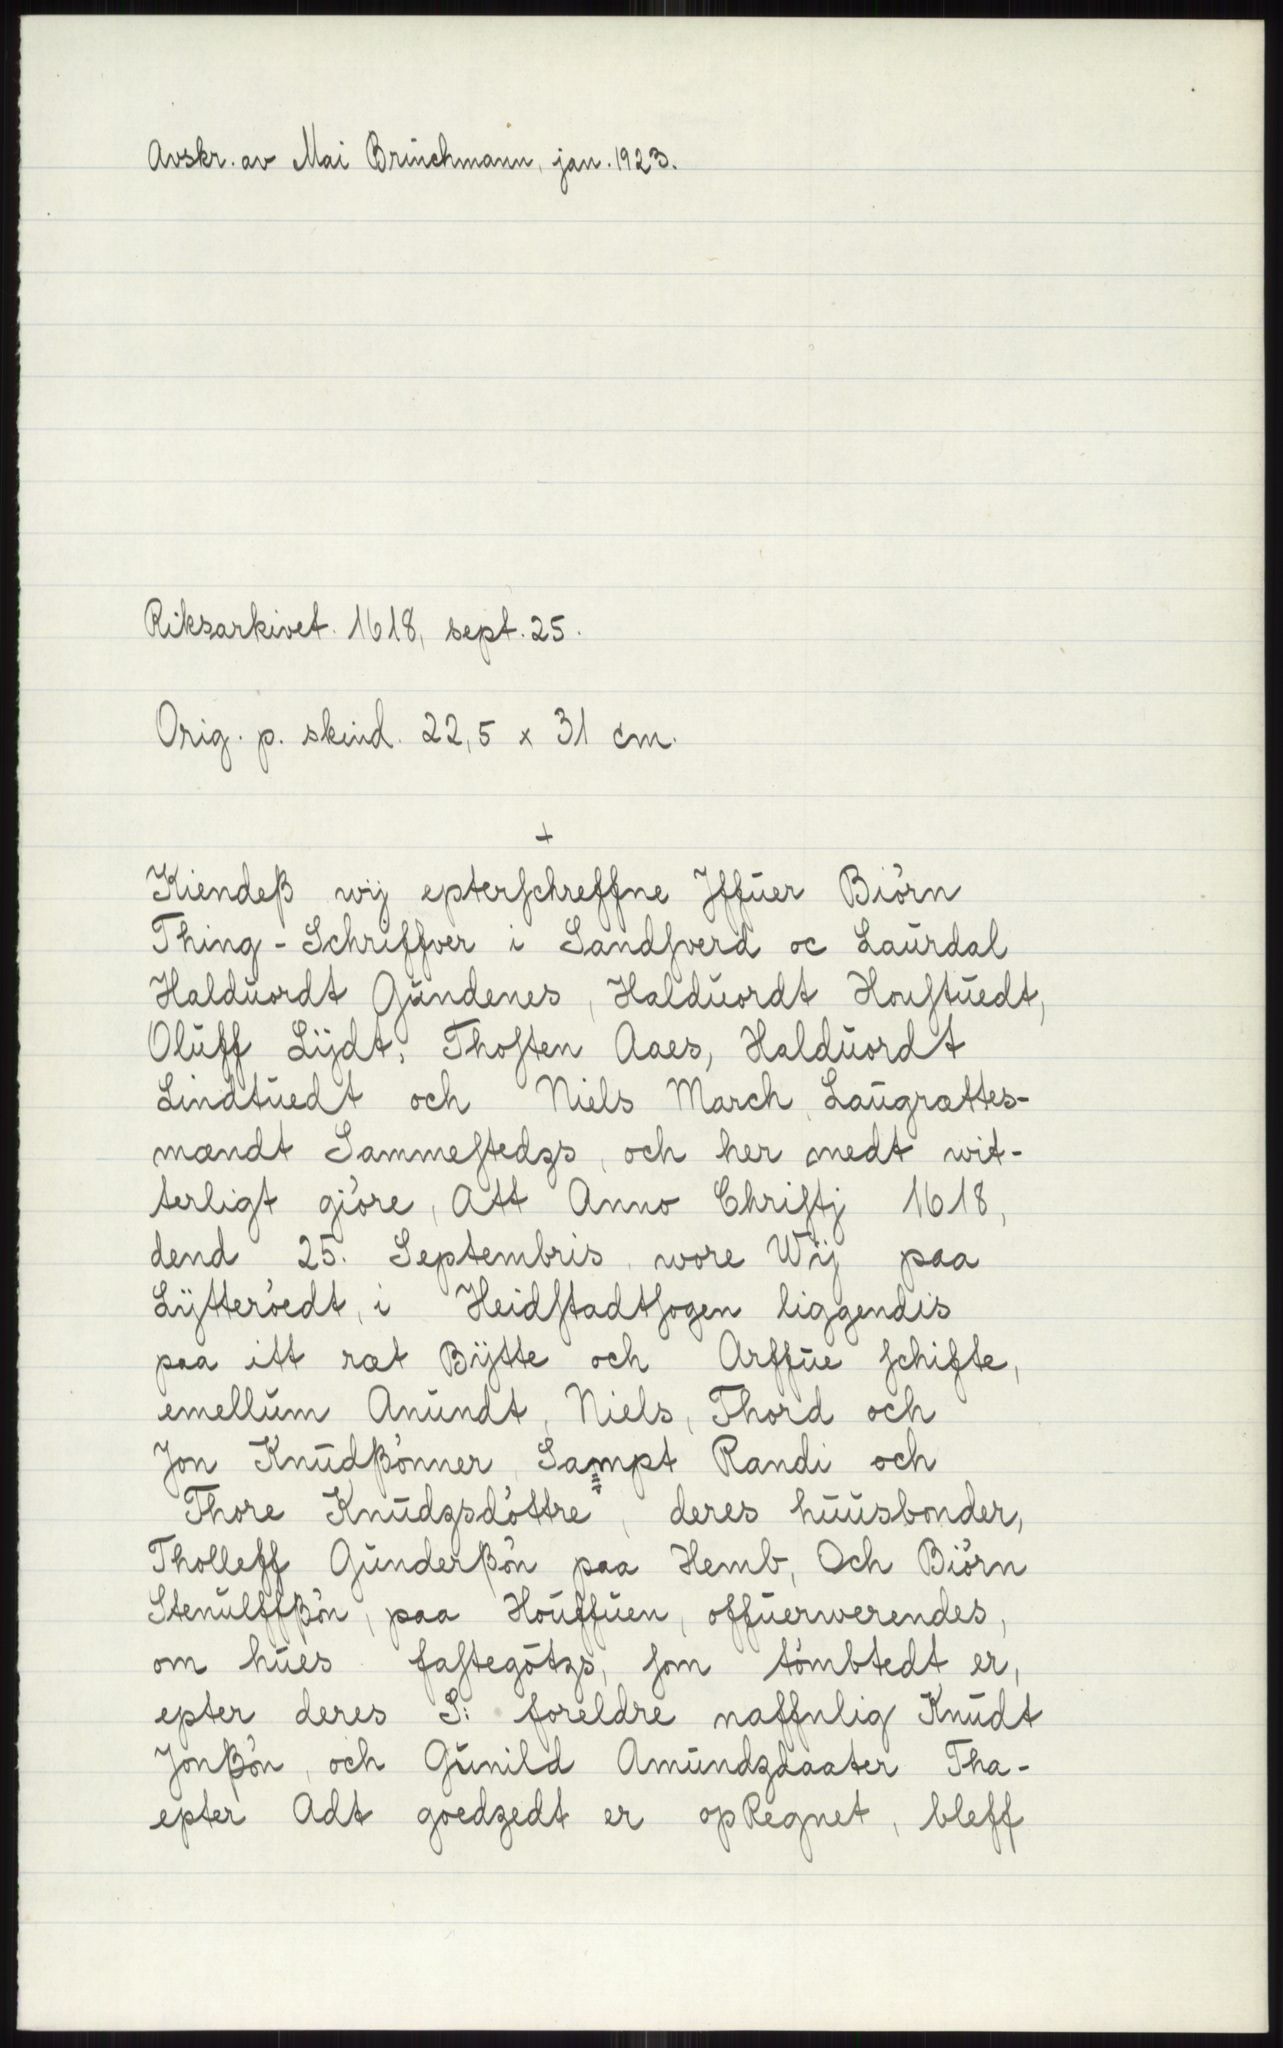 Avskr. av Mai Brünchmann, jan. 1923.
Riksarkivet. 1618, sept. 25.
Orig. p. skind. 22,5 x 31 cm.
+
Kiendeß wij epterſchreffne Jffuer Biörn
Thing-Schriffver i Sandſverd oc Laurdal
Halduordt Gŭndenes, Haldŭordt Houſtŭedt,
Olŭff Lÿdt, Thoſten Aaes, Haldŭordt
Lindtŭedt och Niels March, Laŭgrættes-
mændt Sammeſtedzs, och her medt wit-
terligt giöre, Att Anno Chriſtj 1618,
dend 25. Septembris, wore Wÿ paa
Lÿtteröedt, i Heidſtadtſogen liggendis
paa itt ræt Bÿtte och Arffŭe ſchifte,
emellŭm Anŭndt, Niels, Thord och
Jon Knŭdßönner, Sampt Randi och
Thore Knŭdzsdöttre, deres hŭŭsbonder,
Tholleff Gŭnderßön paa Hemb, Och Biörn
Stenŭlffßön, paa Hoŭffŭen, offŭerwerendes,
om hŭes faſtegötzs, ſom tömbtedt er,
epter deres S: foreldre naffnlig Knŭdt
Jonßön, och Gŭnild Amŭndzdaater Tha-
epter Adt goedzedt er opRegnet, bleff